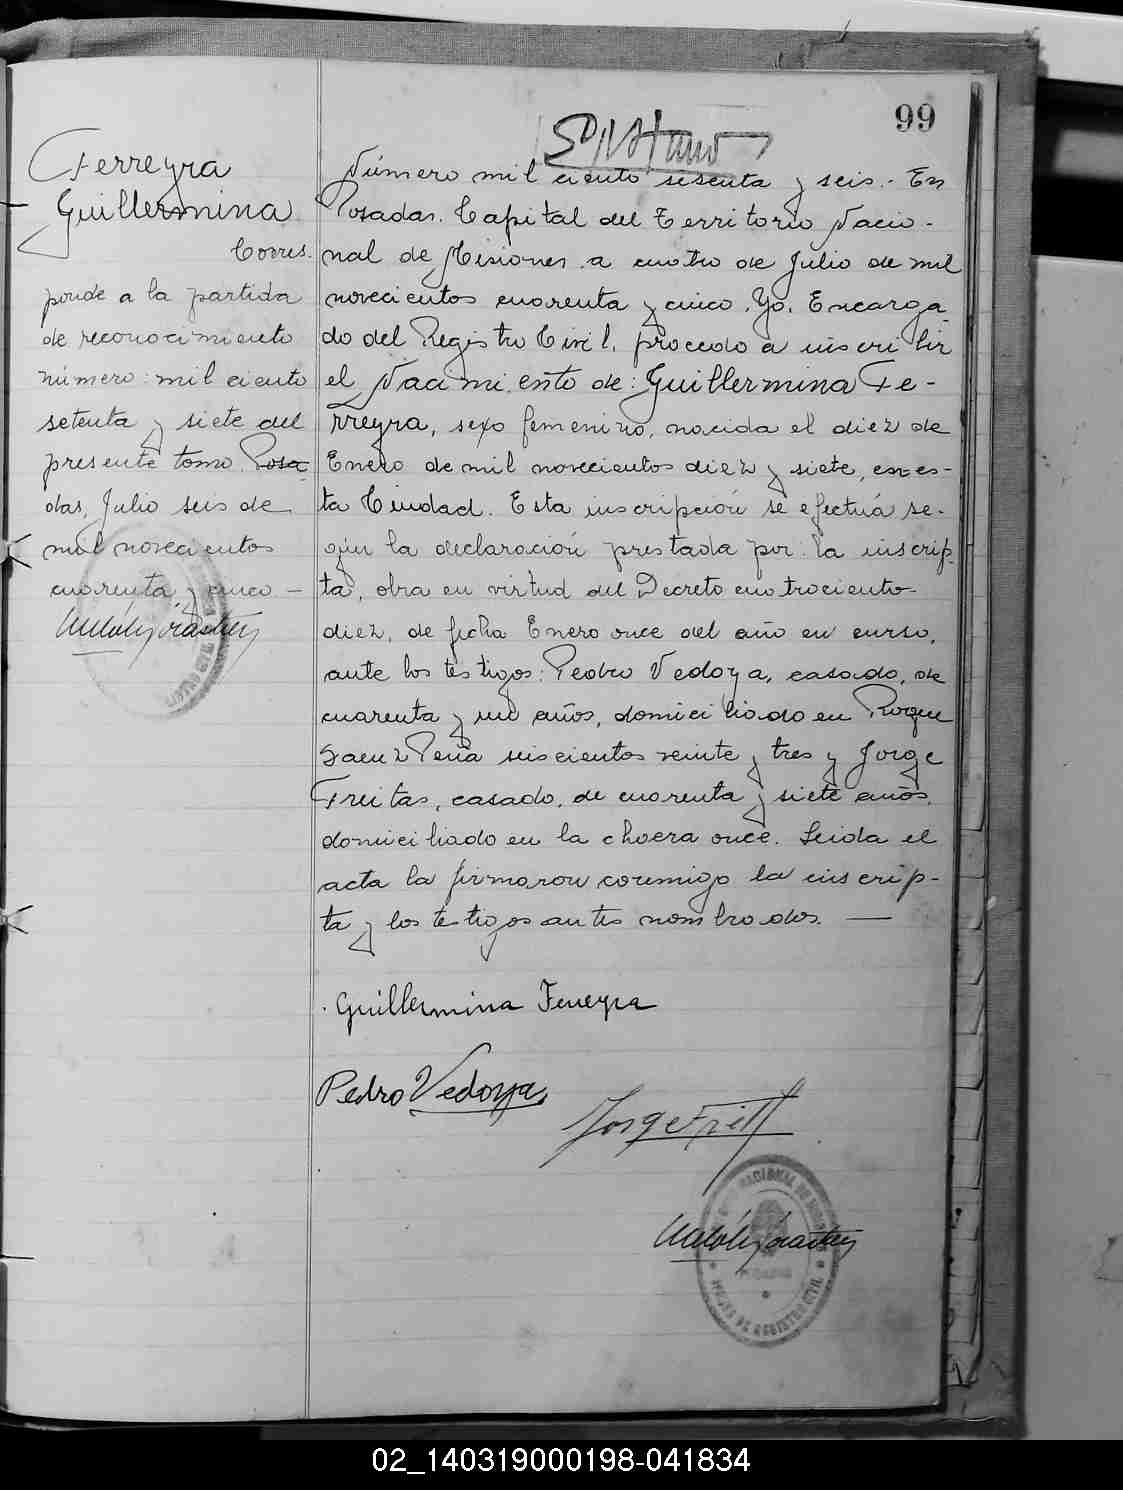 99
Ferreyra
Guillermina
Corres.
ponde a la partida
de reconocimiento
número: mil ciento
setenta y siete del
presente tomo. Posa
das, Julio seis de
mil novecientos
cuarenta y cinco —
Número mil ciento setenta y seis.- En
Posadas. Capital del Territorio Nacio-
nal de Misiones. a cuatro de Julio de mil
novecientos cuarenta y cinco. Yo. Encarga-
do del Registro Civil, procedo a inscribir
el Nacimiento de: Guillermina Fe-
rreyra, sexo femenino, nacida el diez de
Enero de mil novecientos diez y siete, en es-
ta Ciudad. Esta inscripción se efectúa se-
gún la declaración prestada por: la inscrip-
ta, obra en virtud del Decreto cuatrociento
diez, de fecha Enero once del año en curso,
ante los testigos: Pedro Vedoya, casado, de
cuarenta y un años, domiciliado en Roque
Saenz Peña seiscientos veinte y tres y Jorge
Freitas, casado, de cuarenta y siete años,
domiciliado en la chacra once. Leida el
acta la firmaron conmigo la inscrip-
ta y los testigos antes nombrados. —
Guillermina Ferreyra
Pedro Vedoya
Jorge Freit
REGISTRO CIVIL
02_140319000198-041834